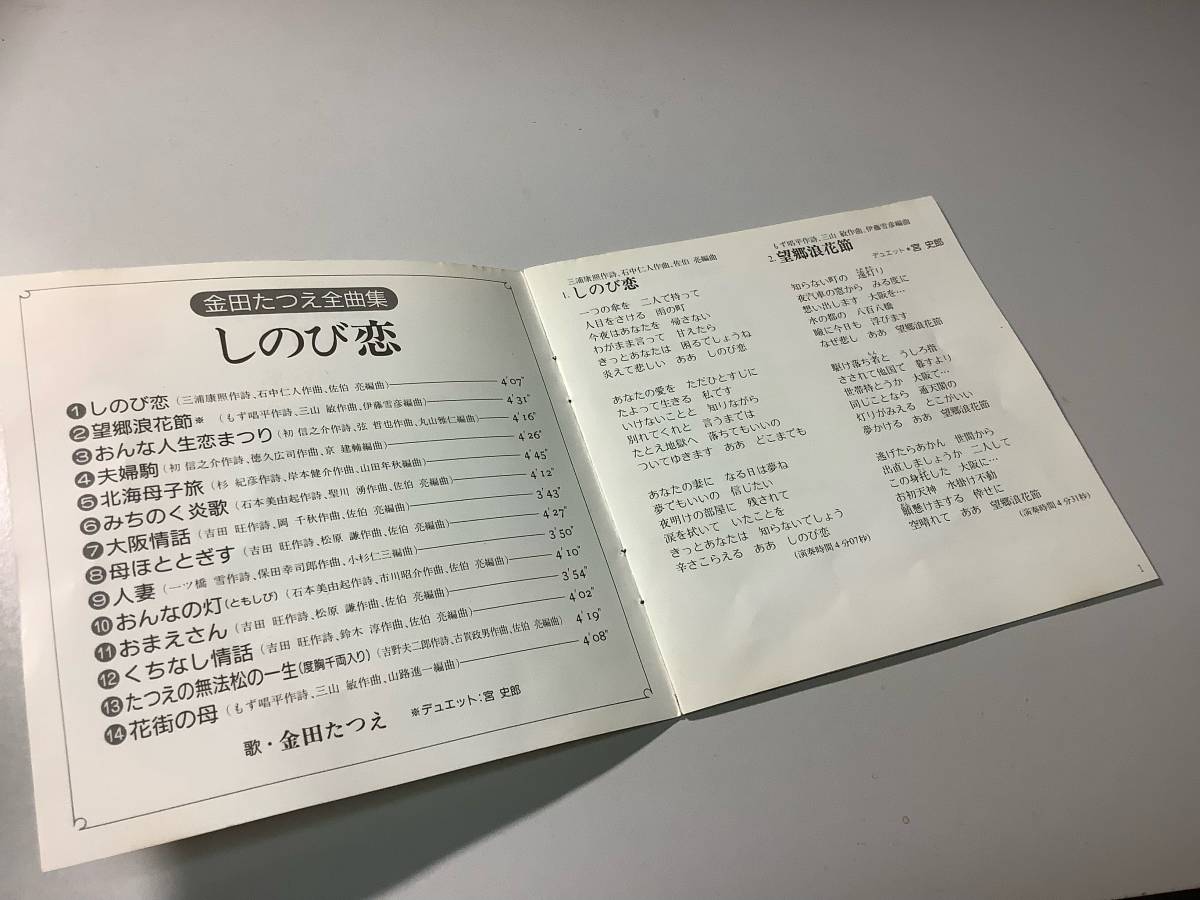 金田たつえ全曲集
しのび恋
1 しのび恋 (三浦康照作詩、石中仁人作曲、佐伯 亮編曲) 4'07"
2 望郷浪花節※ (もず唱平作詩、三山 敏作曲、伊藤雪彦編曲) 4'31"
3 おんな人生恋まつり (初 信之介作詩、弦 哲也作曲、丸山雅仁編曲) 4'16"
4 夫婦駒 (初 信之介作詩、徳久広司作曲、京 建輔編曲) 4'26"
5 北海母子旅 (杉 紀彦作詩、岸本健介作曲、山田年秋編曲) 4'45"
6 みちのく炎歌 (石本美由起作詩、聖川 湧作曲、佐伯 亮編曲) 4'12"
7 大阪情話 (吉田 旺作詩、岡 千秋作曲、佐伯 亮編曲) 3'43"
8 母ほととぎす (吉田 旺作詩、松原 謙作曲、佐伯 亮編曲) 4'27"
9 人妻 (一ツ橋 雪作詩、保田幸司郎作曲、小杉仁三編曲) 3'50"
10 おんなの灯(ともしび) (石本美由起作詩、市川昭介作曲、佐伯 亮編曲) 4'10"
11 おまえさん (吉田 旺作詩、松原 謙作曲、佐伯 亮編曲) 3'54"
12 くちなし情話 (吉田 旺作詩、鈴木 淳作曲、佐伯 亮編曲) 4'02"
13 たつえの無法松の一生(度胸千両入り) (吉野夫二郎作詩、古賀政男作曲、佐伯 亮編曲) 4'19"
14 花街の母 (もず唱平作詩、三山 敏作曲、山路進一編曲) 4'08"
歌・金田たつえ ※デュエット:宮 史郎
三浦康照作詩、石中仁人作曲、佐伯 亮編曲
1. しのび恋
一つの傘を 二人で持って
人目をさける 雨の町
今夜はあなたを 帰さない
わがまま言って 甘えたら
きっとあなたは 困るでしょうね
炎えて悲しい ああ しのび恋
あなたの愛を ただひとすじに
たよって生きる 私です
いけないことと 知りながら
別れてくれと 言うまでは
たとえ地獄へ 落ちてもいいの
ついてゆきます ああ どこまでも
あなたの妻に なる日は夢ね
夢でもいいの 信じたい
夜明けの部屋に 残されて
涙を拭いて いたことを
きっとあなたは 知らないでしょう
辛さこらえる ああ しのび恋
(演奏時間4分07秒)
もず唱平作詩、三山 敏作曲、伊藤雪彦編曲
2. 望郷浪花節
デュエット・宮 史郎
知らない町の 遠灯り
夜汽車の窓から みる度に
想い出します 大阪を…
水の都の 八百八橋
瞼に今日も 浮びます
なぜ悲し ああ 望郷浪花節
駆け落ち者と うしろ指
さされて他国で 暮すより
世帯持とうか 大阪で…
同じことなら 通天閣の
灯りがみえる とこがいい
夢かける ああ 望郷浪花節
逃げたらあかん 世間から
出直しましょうか 二人して
この身託した 大阪に…
お初天神 水掛け不動
願懸けまする 倖せに
空晴れて ああ 望郷浪花節
(演奏時間4分31秒)
1